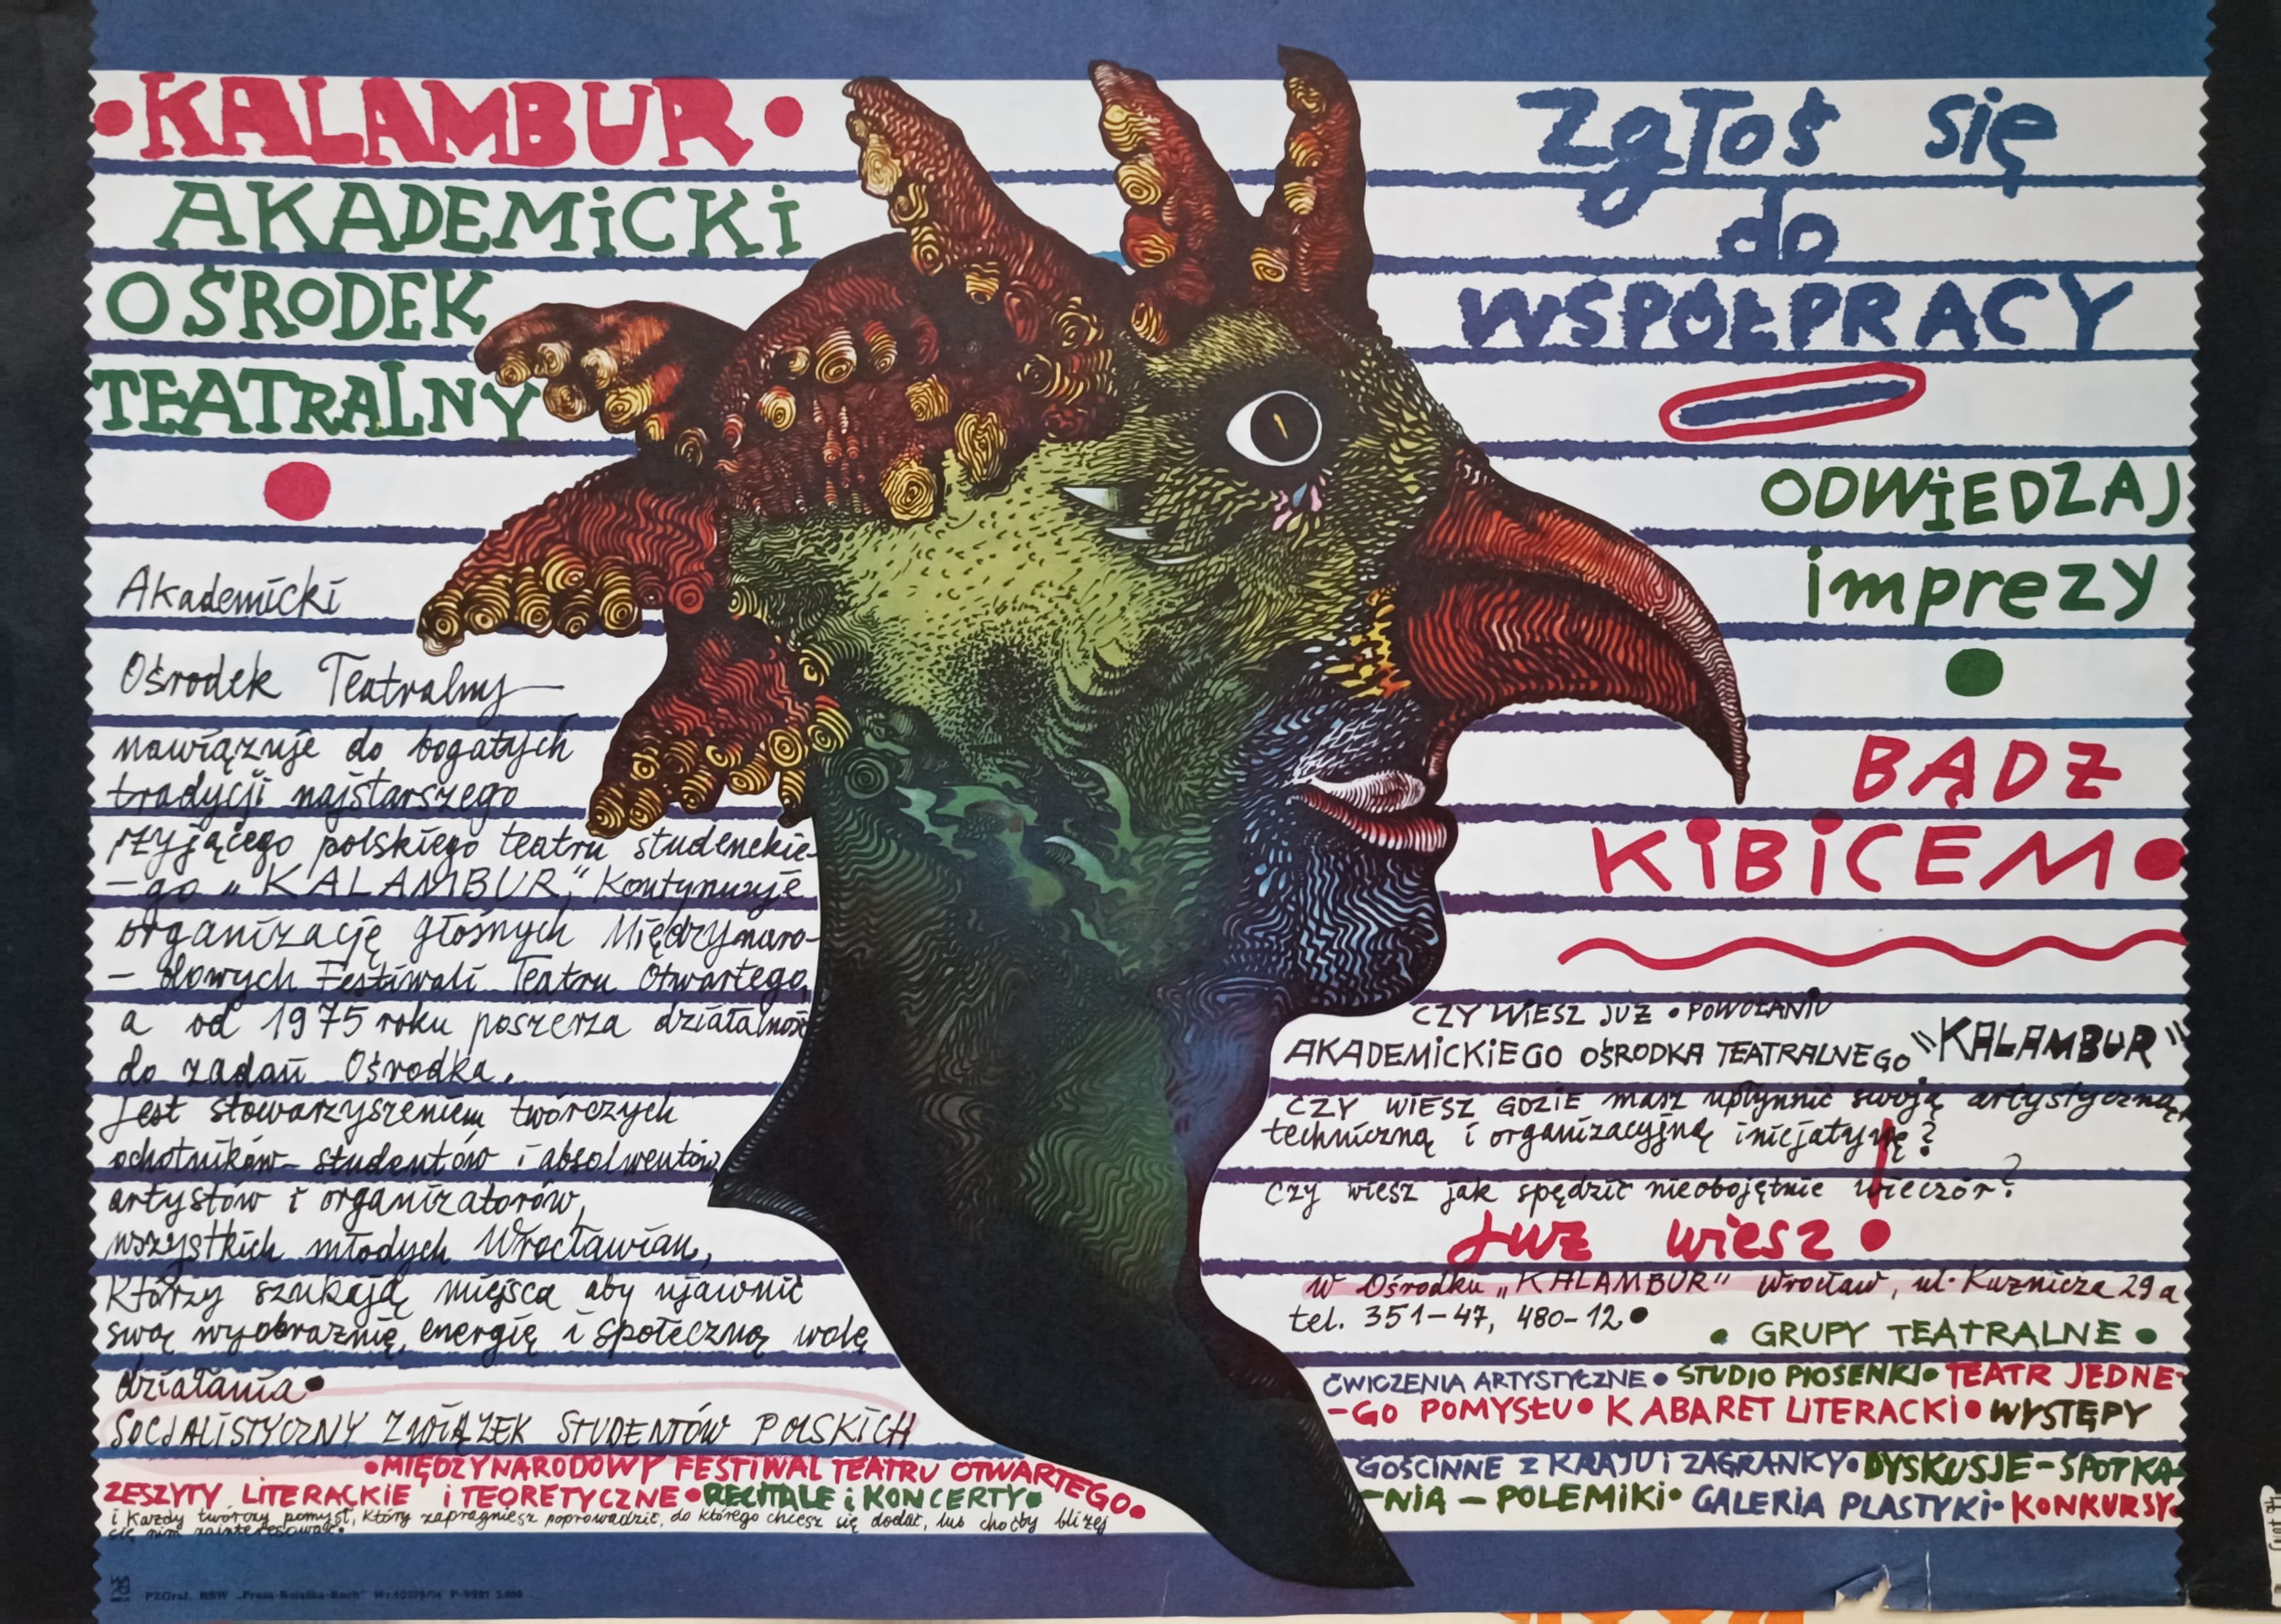 •KALAMBUR•
AKADEMiCKi
OŚRODEK
TEATRALNY
Akademicki
Ośrodek Teatralny—
nawiązuje do bogatych
tradycji najstarszego
żyjącego polskiego teatru studenckie-
-go „KALAMBUR,” kontynuuje
organizację głośnych Międzynaro-
- dowych Festiwali Teatru Otwartego,
a od 1975 roku poszerza działalność
do zadań Ośrodka.
Jest stowarzyszeniem twórczych
ochotników- studentów i absolwentów
artystów i organizatorów,
wszystkich młodych Wrocławian,
którzy szukają miejsca aby ujawnić
swą wyobraźnię, energię i społeczną wolę
działania•
SOCJALISTYCZNY ZWIĄZEK STUDENTÓW POLSKICH
•MIĘDZYNARODOWY FESTIWAL TEATRU OTWARTEGO•
ZESZYTY LITERACKIE i TEORETYCZNE•RECITALE i KONCERTY•
i każdy twórczy pomysł, który zapragniesz poprowadzić, do którego chcesz się dodać, lub choćby bliżej
się nim zainteresować.
PZGraf. RSW „Prasa-Książka-Ruch”
Zgłoś się
do
WSPÓŁPRACY
ODWiEDZAJ
imprezy
BĄDŹ
KiBiCEM•
CZY WiESZ JUŻ o POWOŁANIU
AKADEMiCKiEGO OŚRODKA TEATRALNEGO "KALAMBUR"
CZY WIESZ GDZIE masz upłynnić swoją artystyczną,
techniczną i organizacyjną inicjatywę?
Czy wiesz jak spędzić nieobojętnie wieczór?
Już wiesz!
w Ośrodku „KALAMBUR” Wrocław, ul. Kuźnicza 29a
tel. 351-47, 480-12•
• GRUPY TEATRALNE •
ĆWICZENIA ARTYSTYCZNE • STUDIO PIOSENKI• TEATR JEDNE-
-GO POMYSŁU• KABARET LITERACKI• WYSTĘPY
GOŚCINNE Z KRAJU i ZAGRANICY• DYSKUSJE-SPOTKA-
-NIA - POLEMIKI• GALERIA PLASTYKI• KONKURSY•